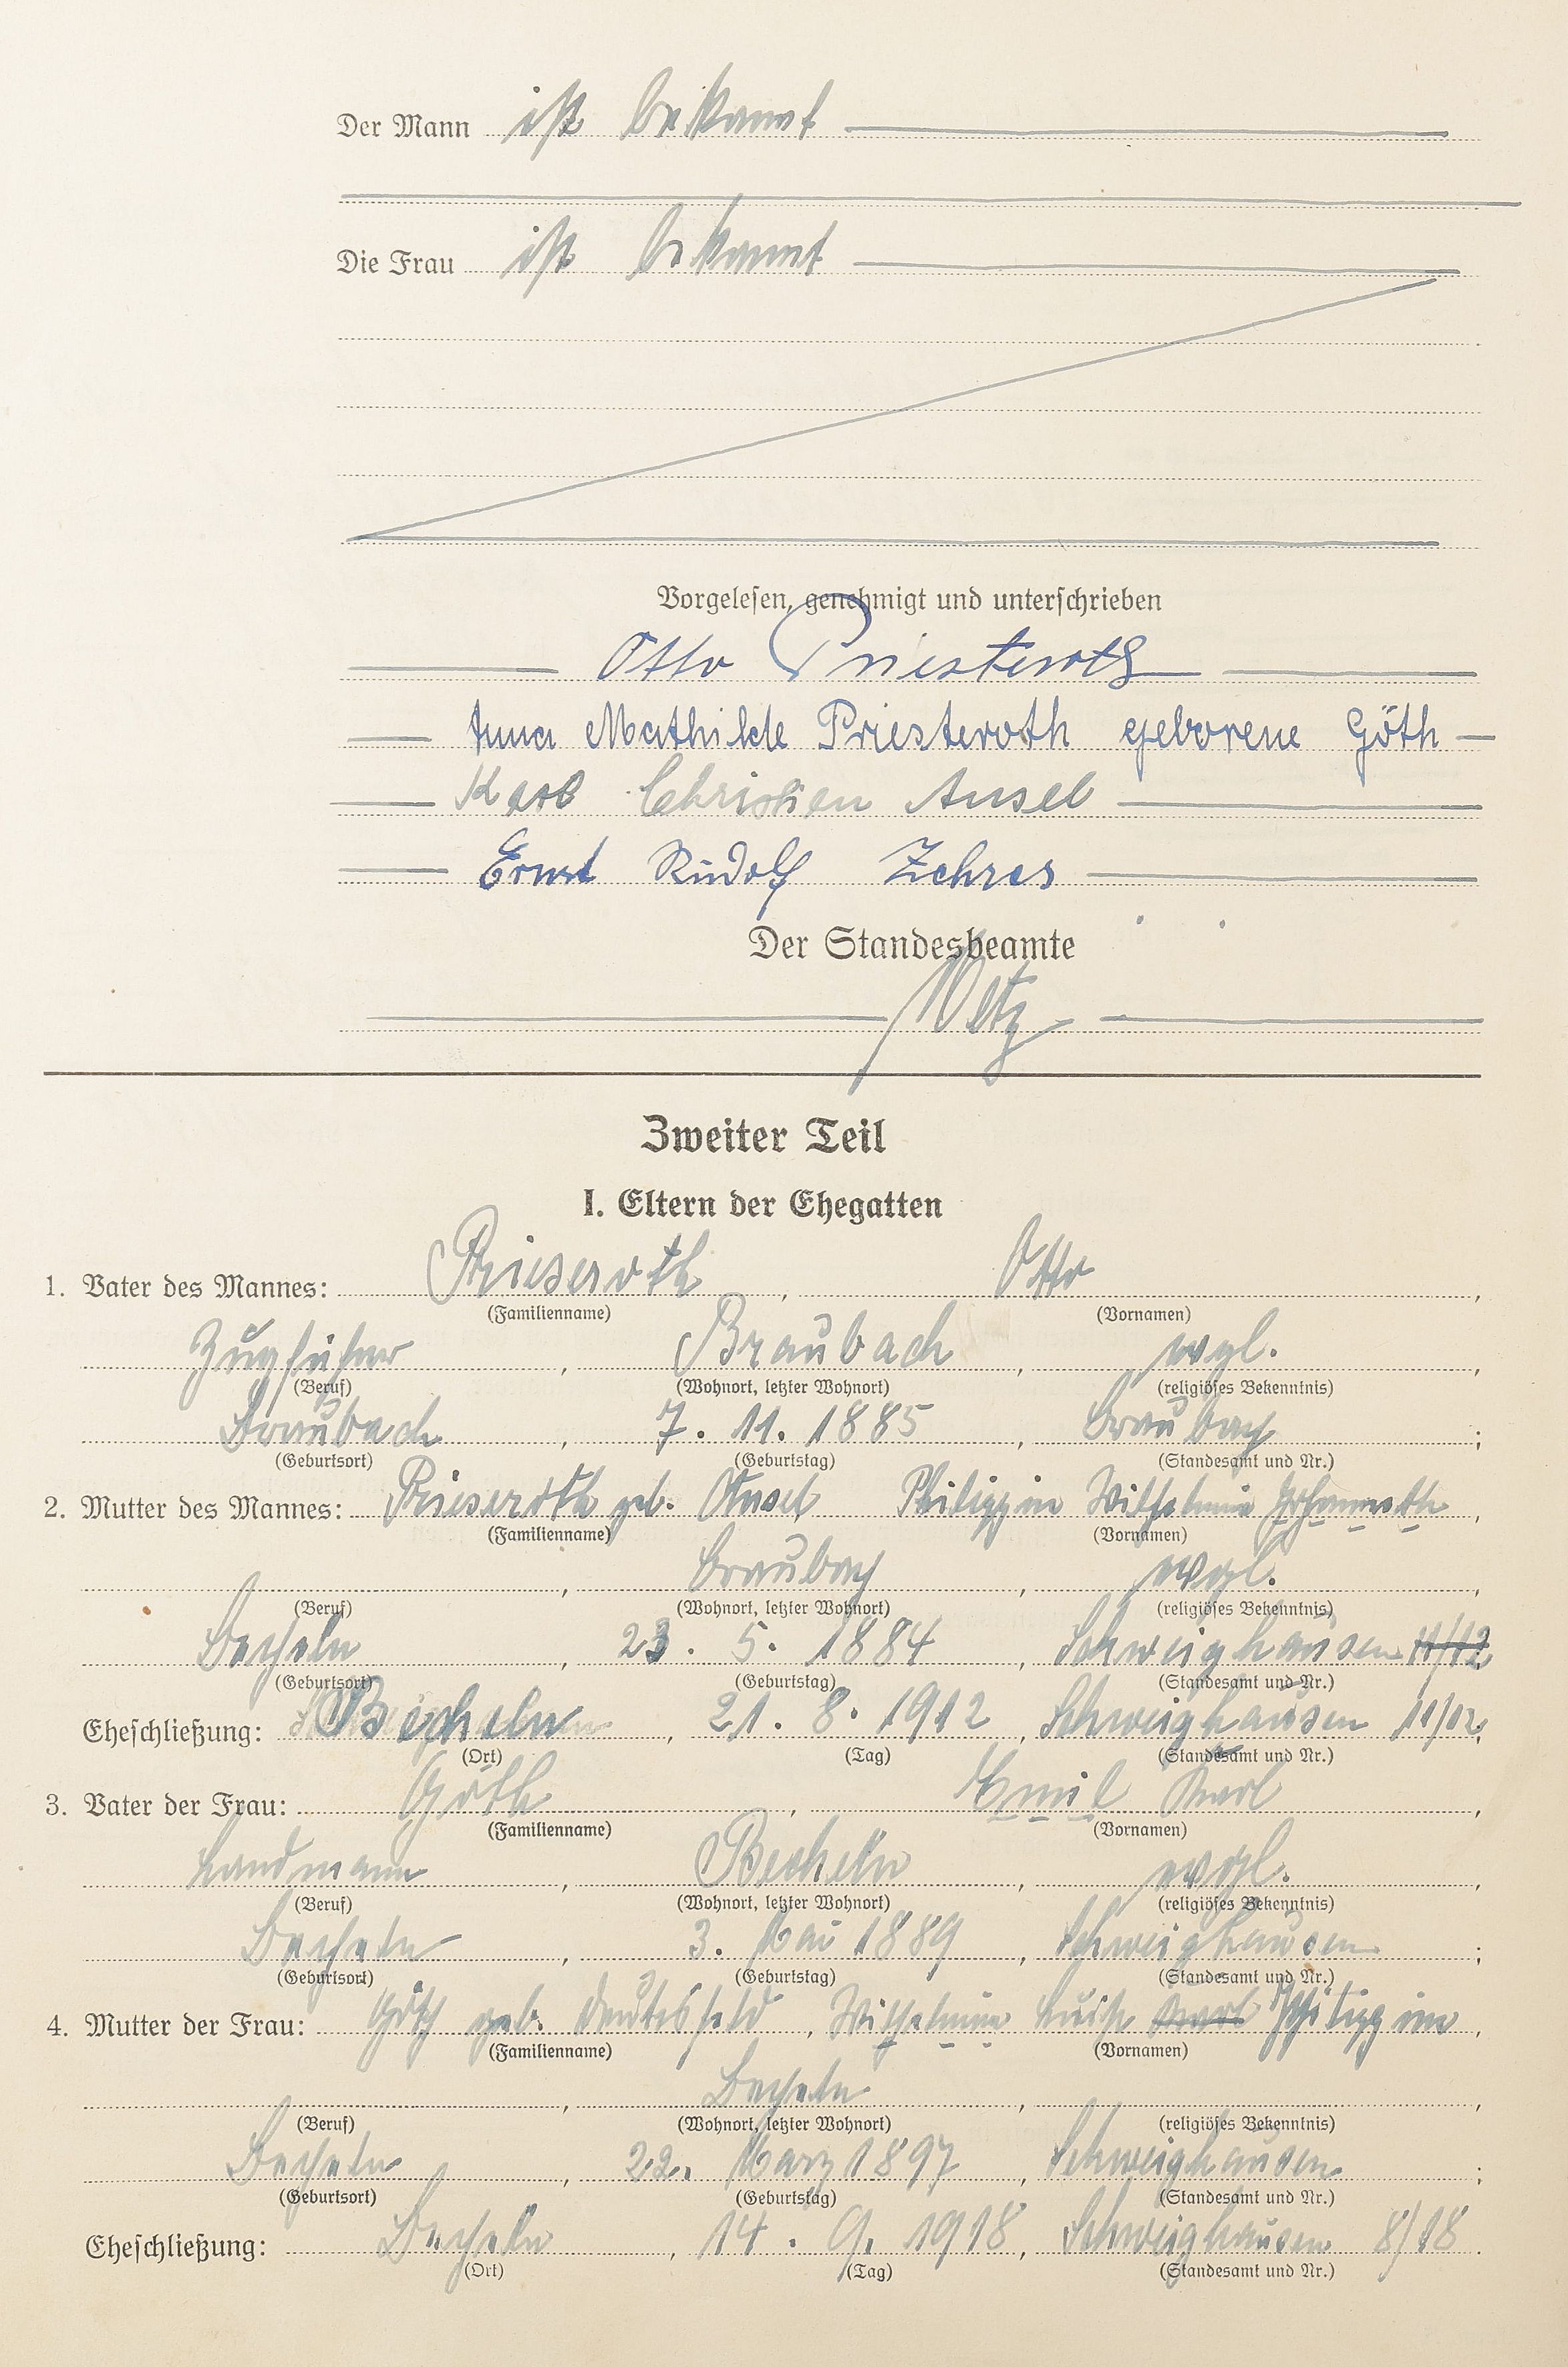 Der Mann ist bekannt
Die Frau ist bekannt
Vorgelesen, genehmigt und unterschrieben
Otto Priesteroth
Anna Mathilde Priesteroth geborene Göth
Karl Christian Ansel
Ernst Rudolf Zehres
Der Standesbeamte
Metz
Zweiter Teil
I. Eltern der Ehegatten
1. Vater des Mannes: Prieseroth, Otto,
(Familienname) (Vornamen)
Zugführer, Braubach, evgl.,
(Beruf) (Wohnort, letzter Wohnort) (religiöses Bekenntnis)
Braubach, 7. 11. 1885, Braubach;
(Geburtsort) (Geburtstag) (Standesamt und Nr.)
2. Mutter des Mannes: Prieseroth geb. Ansel Philippine Wilhelmine,
(Familienname) (Vornamen)
, Braubach, evgl.,
(Beruf) (Wohnort, letzter Wohnort) (religiöses Bekenntnis)
Becheln, 23. 5. 1884, Schweighausen 11/12
(Geburtsort) (Geburtstag) (Standesamt und Nr.)
Eheschließung: Becheln, 21. 8. 1912, Schweighausen 11/12.
(Ort) (Tag) (Standesamt und Nr.)
3. Vater der Frau: Göth, Emil Karl,
(Familienname) (Vornamen)
Landmann, Becheln, evgl.,
(Beruf) (Wohnort, letzter Wohnort) (religiöses Bekenntnis)
Becheln, 3. Mai 1889, Schweighausen;
(Geburtsort) (Geburtstag) (Standesamt und Nr.)
4. Mutter der Frau: Göth geb. Deutesfeld, Wilhelmine Luise Karl Philippine,
(Familienname) (Vornamen)
, Becheln, ,
(Beruf) (Wohnort, letzter Wohnort) (religiöses Bekenntnis)
Becheln, 22. März 1897, Schweighausen;
(Geburtsort) (Geburtstag) (Standesamt und Nr.)
Eheschließung: Becheln, 14. 9. 1918, Schweighausen 8/18.
(Ort) (Tag) (Standesamt und Nr.)